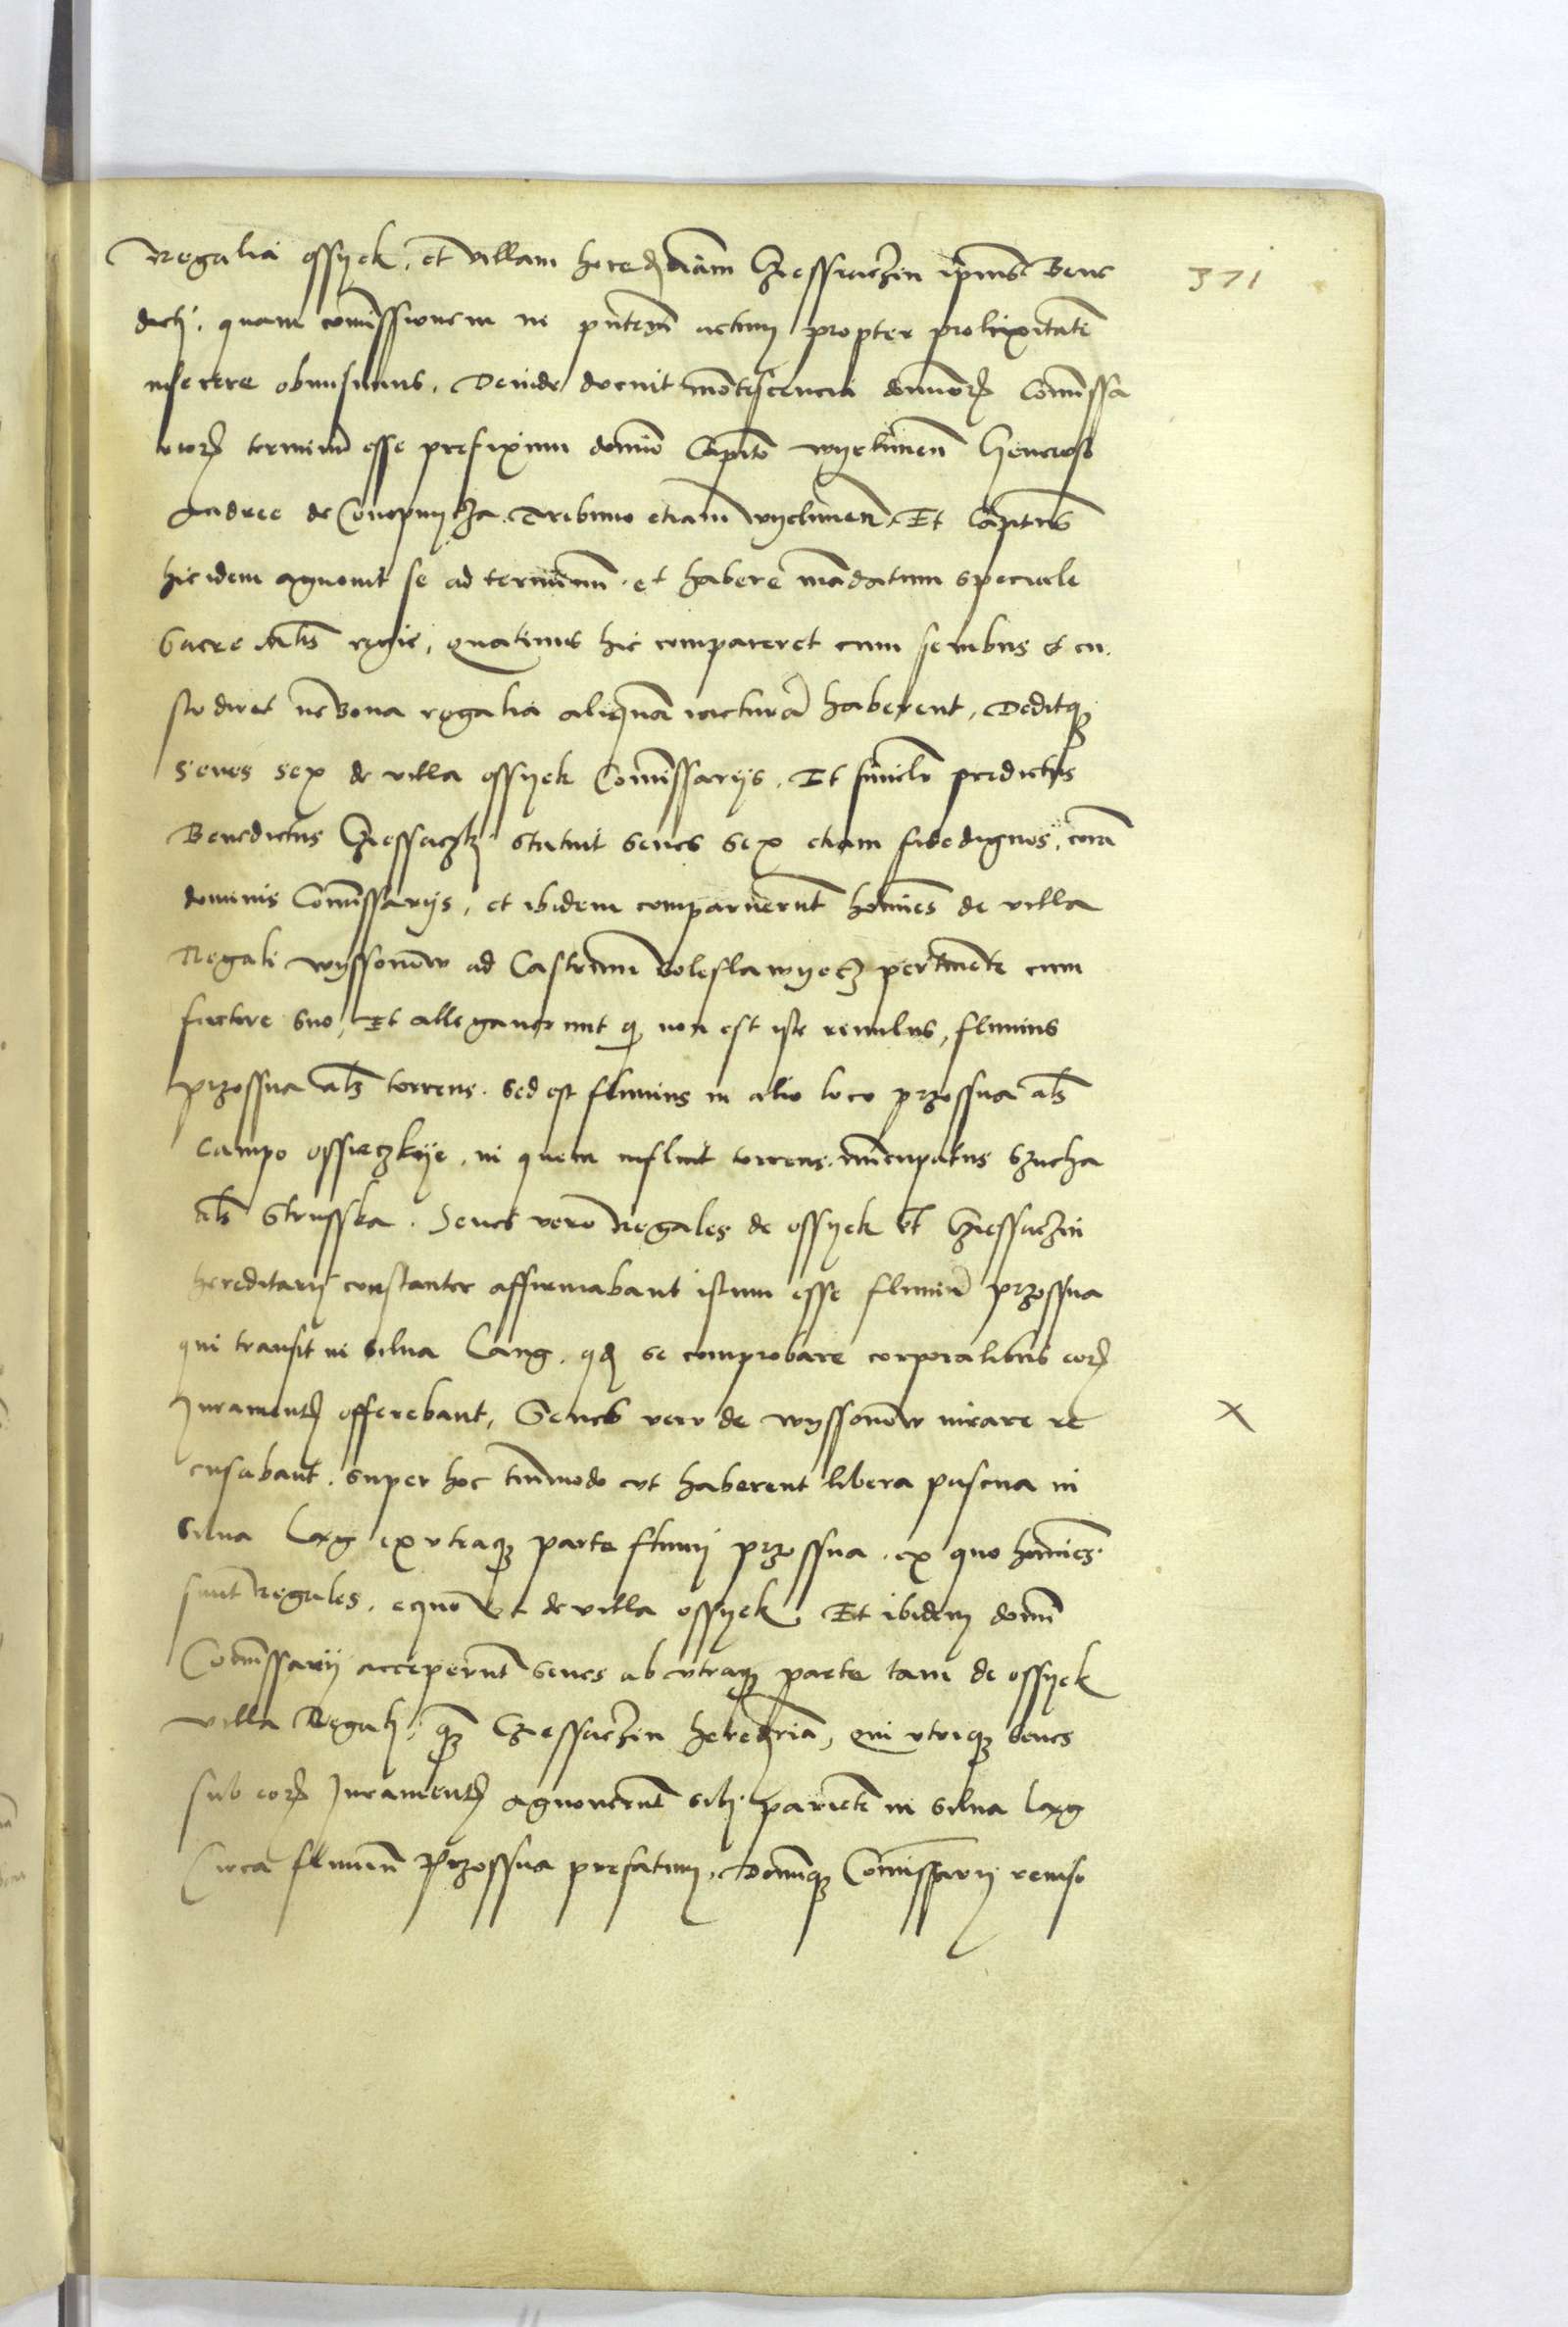 Regalia ossyek, et villam heredriam Czessaczin ipius Bene
dicti, quam comissionem in pntem actum propter prolixitate
inserere obmisimus. Deinde docuit innotescencia dominorum Comissa
riorum terminu esse prefixum domio Capito wyelunen Generoso
Andree de Conopnycza Tribuno etiam wyelunen. Et Capitus
hic idem agnovit se ad terminum et habere madatum speciale
Sacre Mtis regie, quatinus hic compareret cum senibus et cu
stodiret ne bona regalia aliqua iactura haberent, Deditque
senes sex de villa ossyek Comissarijs. Et similr predictus
Benedictus Czessaczki statuit senes sex etiam fidedignos, cora
dominis Comissarijs, et ibidem comparuerunt homines de villa
Regali wyssonow ad Castrum boleslawyecz pertinente cum
factore suo, Et allegaverunt quod non est iste rivulus, fluvius
przossna als torrens. Sed est fluvius in alio loco przossna als
campo ossieczkye, in quem influit torrens nuncupatus Szucha
als Strusska. Senes vero Regales de ossyek et Czessaczin
hereditarij constanter affirmabant istum esse fluviu przossna
qui transit in silva Lang, quod se comprobare corporalibus eorum
Iuramentis offerebant, Senes vero de wyssonow iurare re
cusabant, super hoc tmmodo ut haberent libera pascua in
silva Lang ex utraque parte fluvij przossna, ex quo homines
sunt Regales, eque ut de villa ossyek. Et ibidem domi
Comissarij acceperunt senes ab utraque parte tam de ossyek
villa Regali, quam Czessaczin heredria, qui utrique senes
sub eorum Iuramentis agnoverunt sibi pariete in silva Lang
Circa fluvium Przossna prefatum, domique Comissarij reviso
371
x